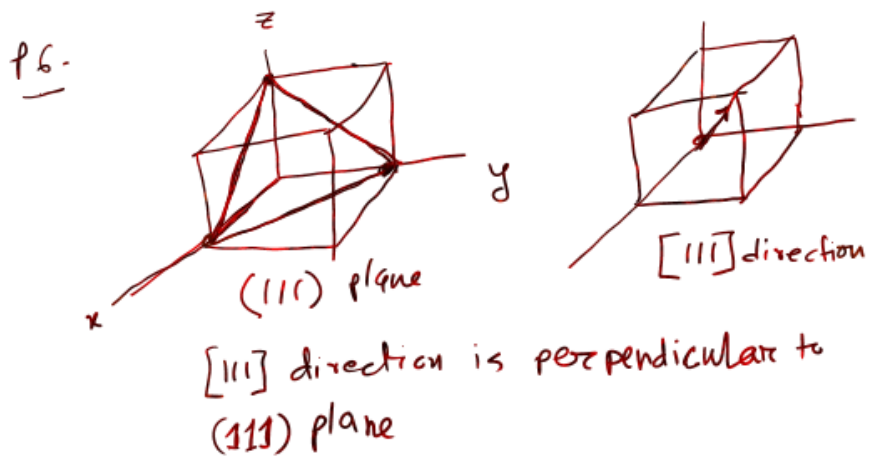 P6.
z
y
x
(111) plane
[111] direction
[111] direction is perpendicular to
(111) plane